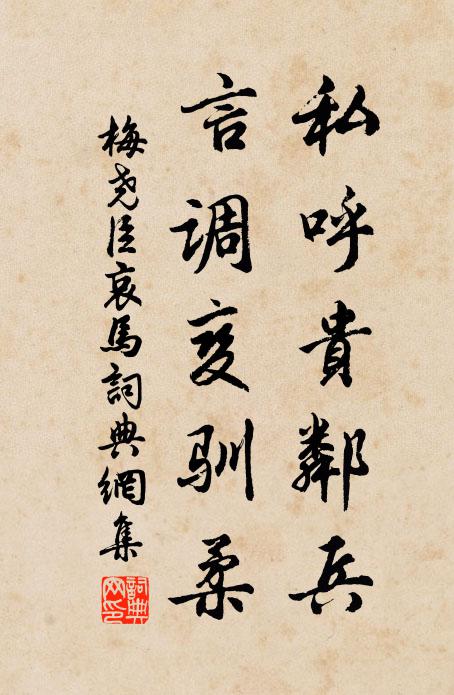 私呼貴鄰兵
言調变馴柔
梅尧臣哀馬詞典網集
詞典网印